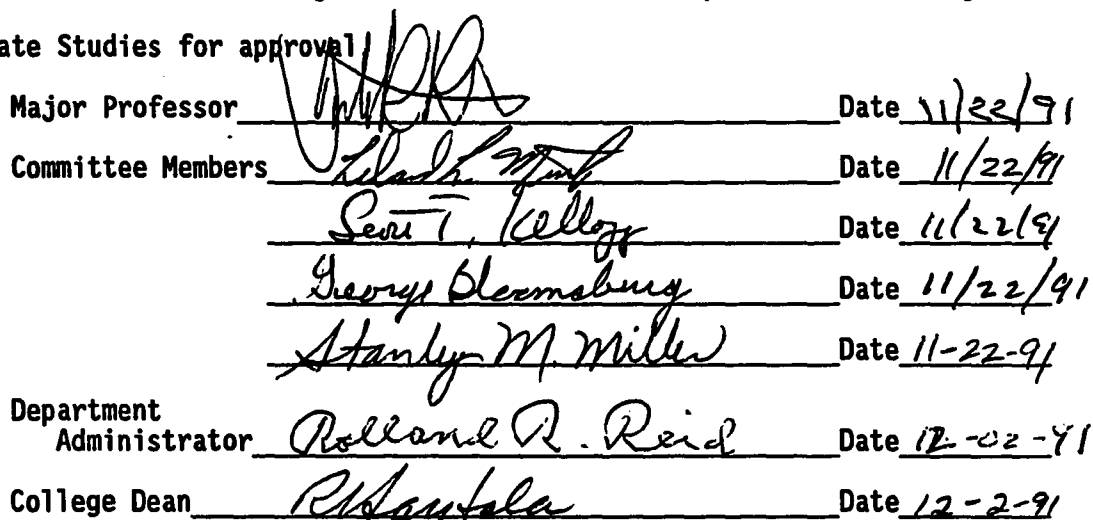 ate Studies for approval
Major Professor Date 11/22/91
Committee Members Leland L. Mink Date 11/22/91
Scott T. Kellogg Date 11/22/91
George Bloomsburg Date 11/22/91
Stanley M. Miller Date 11-22-91
Department
Administrator Rolland R. Reid Date 12-02-91
College Dean Date 12-2-91